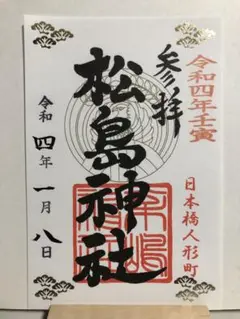 令和四年壬寅
日本橋人形町
参拝
松島神社
令和四年一月八日